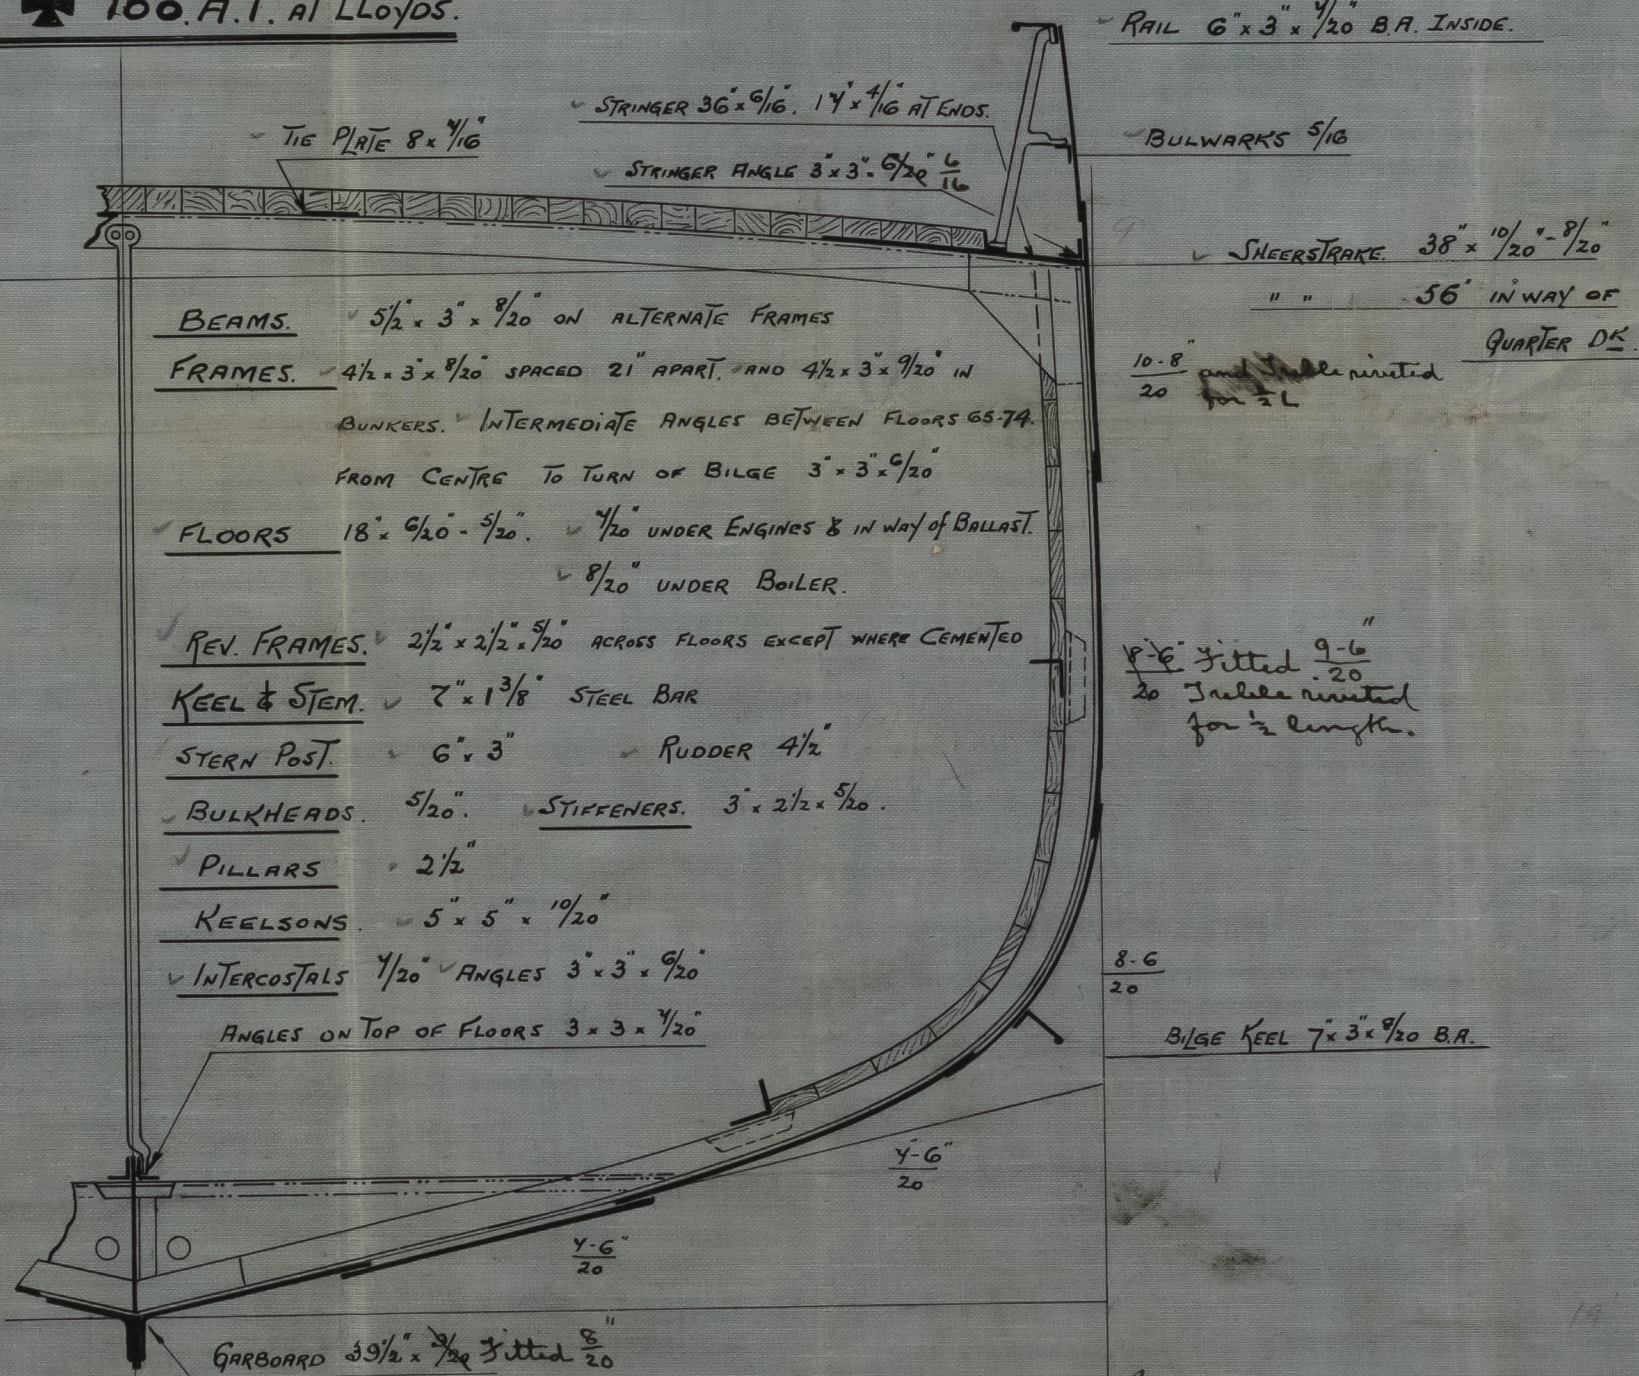 100.A.1. AT LLOYDS.
RAIL 6" x 3" x 7/20" B.A. INSIDE.
STRINGER 36" x 6/16". 17" x 4/16" AT ENDS.
TIE PLATE 8 x 7/16"
BULWARKS 5/16
STRINGER ANGLE 3" x 3" - 6/20" 6/16
SHEERSTRAKE. 38" x 10/20" - 8/20"
" " 56" IN WAY OF
QUARTER DK.
10-8"/20 and Treble riveted
for ½ L
BEAMS. 5½" x 3" x 8/20" ON ALTERNATE FRAMES
FRAMES. 4½ x 3" x 8/20" SPACED 21" APART. AND 4½ x 3" x 9/20" IN
BUNKERS. INTERMEDIATE ANGLES BETWEEN FLOORS 65-74.
FROM CENTRE TO TURN OF BILGE 3" x 3" x 6/20"
FLOORS 18" x 6/20" - 5/20". 7/20" UNDER ENGINES & IN WAY OF BALLAST.
8/20" UNDER BOILER.
REV. FRAMES. 2½" x 2½" x 5/20" ACROSS FLOORS EXCEPT WHERE CEMENTED
KEEL & STEM. 7" x 1 3/8" STEEL BAR
STERN POST. 6" x 3" RUDDER 4½"
BULKHEADS. 5/20". STIFFENERS. 3" x 2½ x 5/20.
PILLARS 2½"
KEELSONS. 5" x 5" x 10/20"
INTERCOSTALS 7/20" ANGLES 3" x 3" x 6/20"
ANGLES ON TOP OF FLOORS 3 x 3 x 7/20"
8-6"/20 Fitted 9-6"/20
Treble riveted
for ½ length.
8-6/20
BILGE KEEL 7" x 3" x 8/20 B.A.
7-6"/20
7-6"/20
GARBOARD 39½" x 9/20 Fitted 8"/20